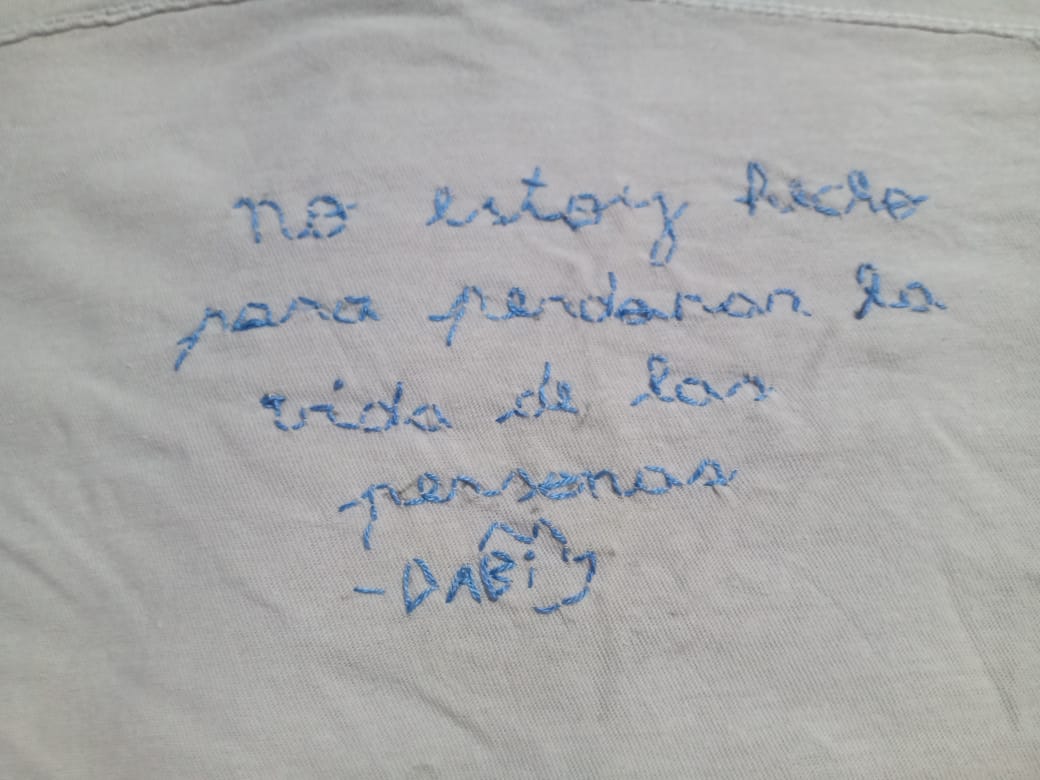 no estoy hecho
para perdonar la
vida de las
personas
-DABi